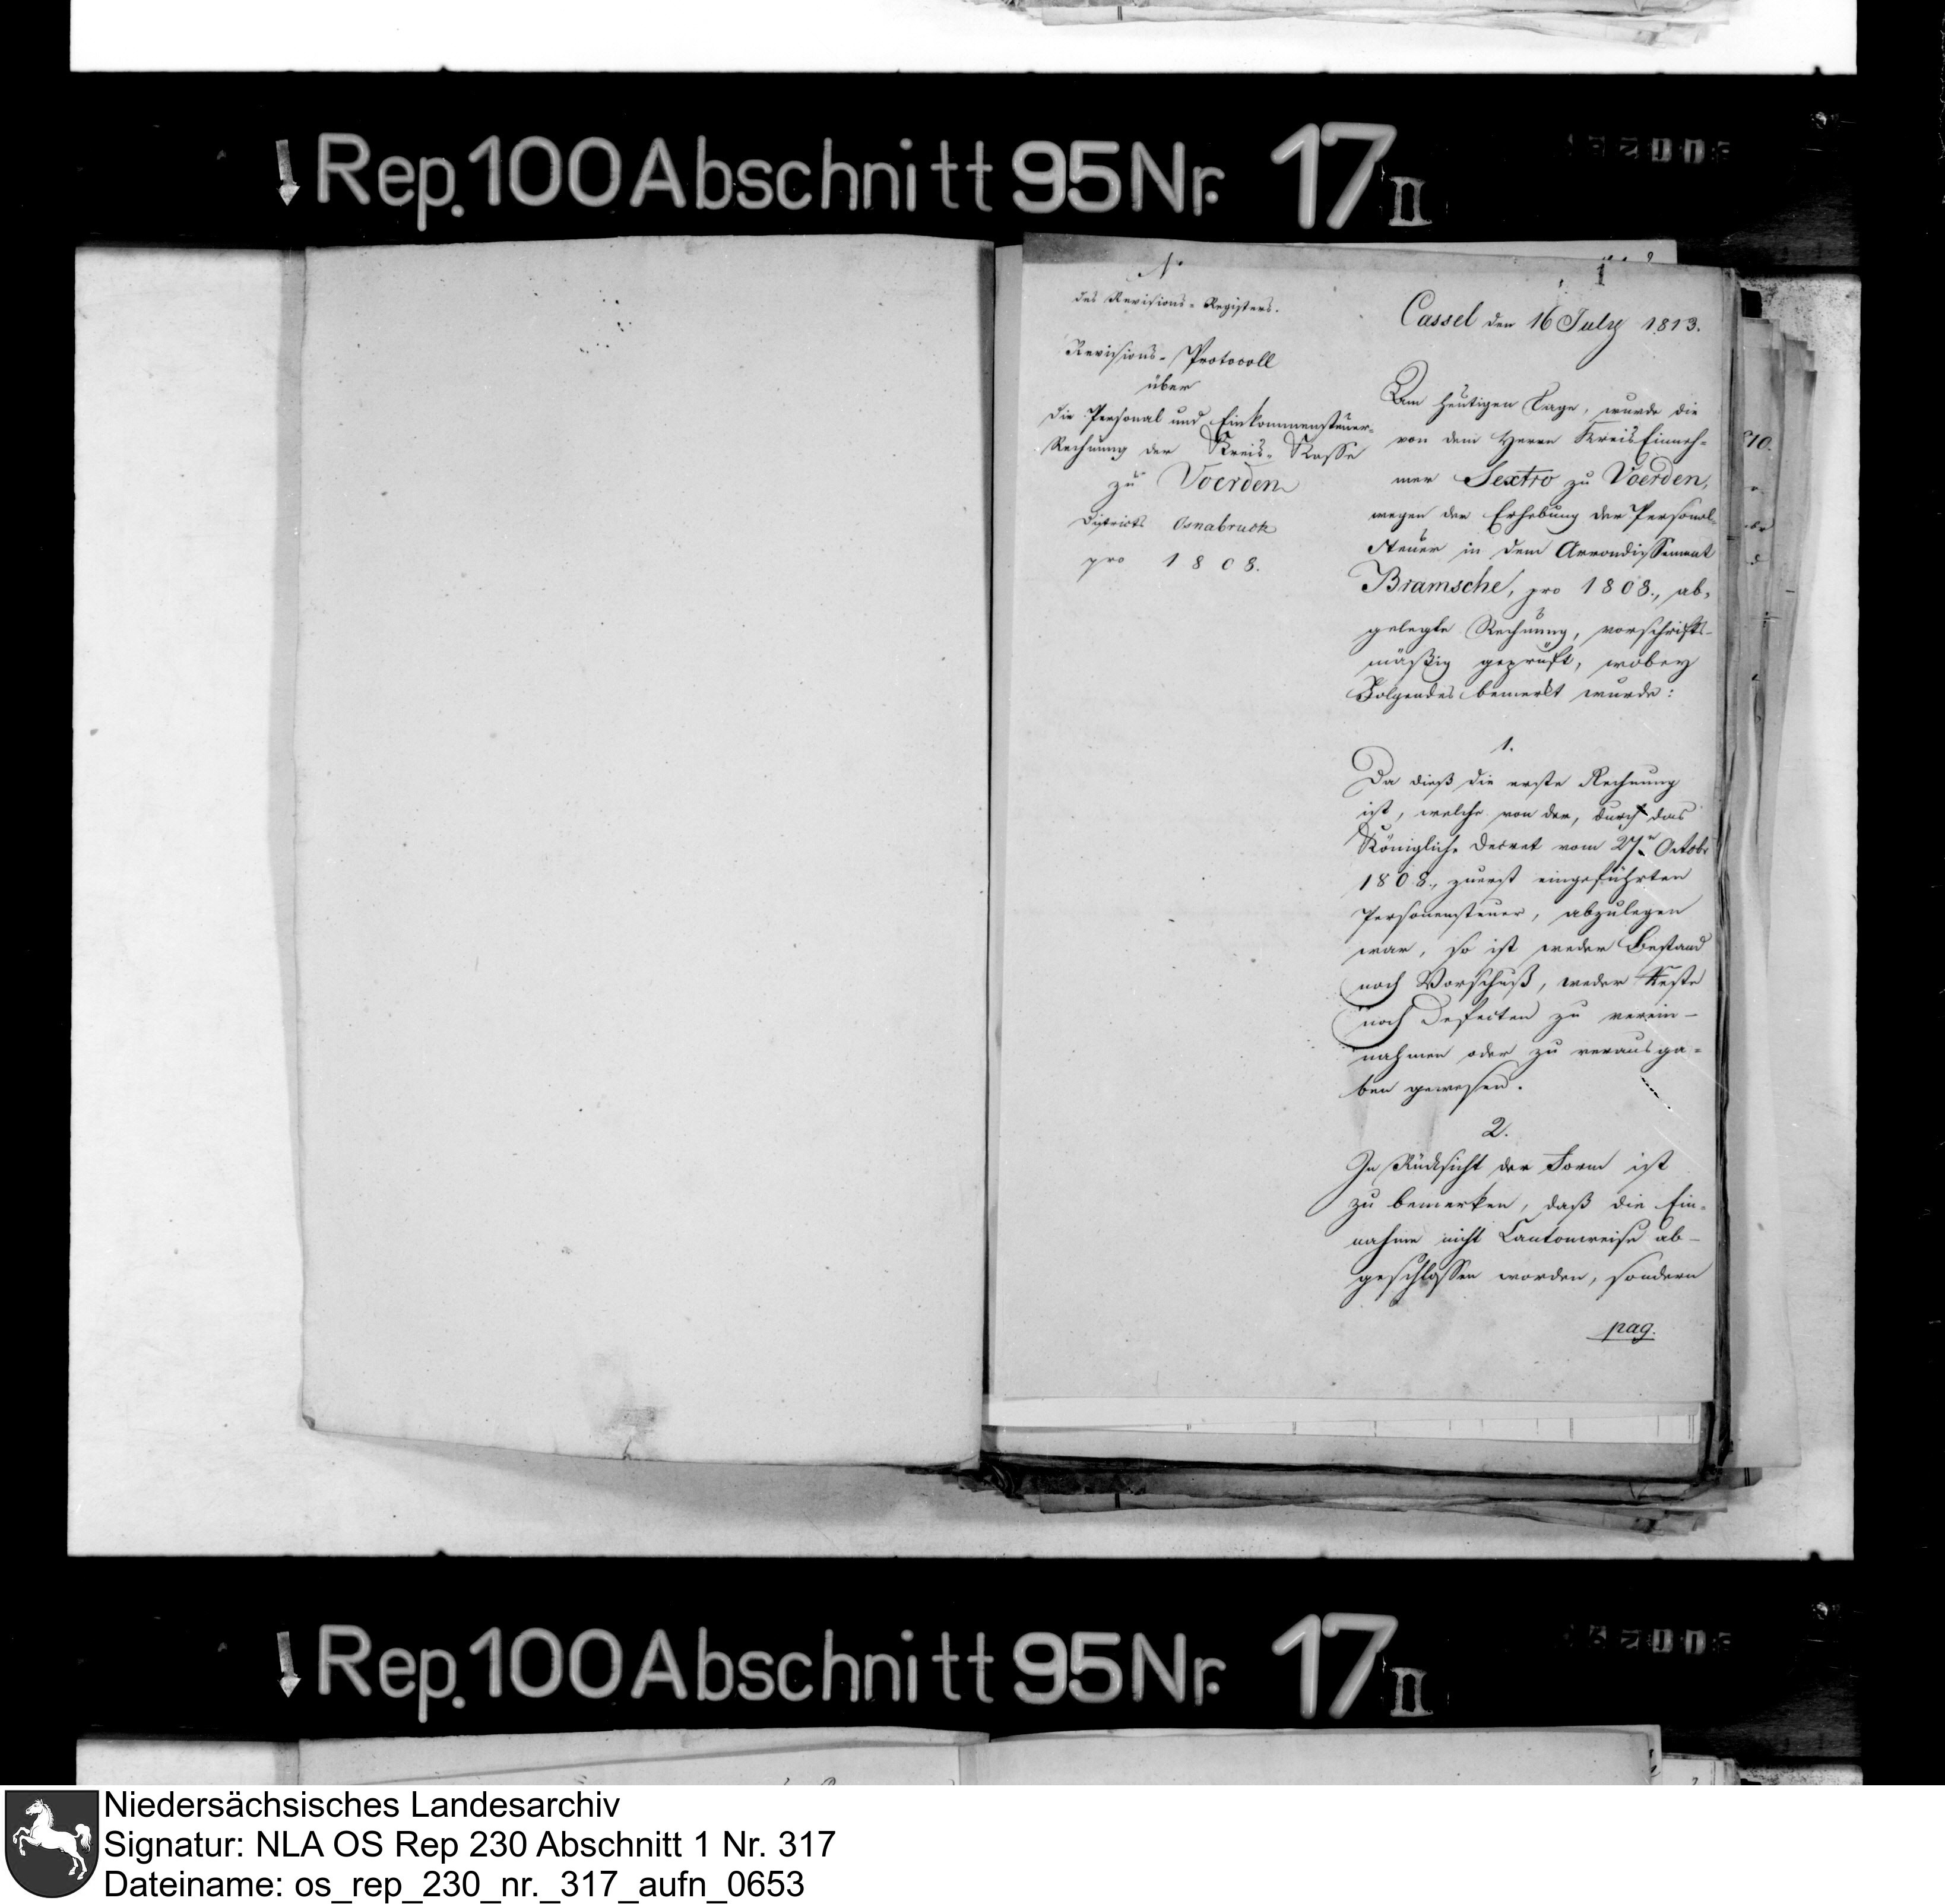 Rep. 100 Abschnitt 95 Nr. 17 II
1
No
des Revisions-Registers.
Revisions-Protocoll
über
die Personal und Einkommensteuer-
Rechnung der Kreis-Kasse
zu Voerden
Districts Osnabruck
pro 1808.
Cassel den 16 July 1813.
Am heutigen Tage, wurde die
von dem Herrn KreisEinneh-
mer Sextro zu Voerden,
wegen der Erhebung der Personal-
Steuer in dem Arrondissement
Bramsche, pro 1808., ab-
gelegte Rechnung, vorschrifts-
mäßig geprüft, wobey
Folgendes bemerkt wurde:
1.
Da dieß die erste Rechnung
ist, welche von der, durch das
Königliche Decret vom 27n Octobr
1808., zuerst eingeführten
Personensteuer, abzulegen
war, so ist weder Bestand
noch Vorschuß, weder Reste
noch Defecten zu verein-
nahmen oder zu verausga-
ben gewesen.
2.
In Rücksicht der Form ist
zu bemerken, daß die Ein-
nahme nicht Cantonweise ab-
geschlossen worden, sondern
pag.
Rep. 100 Abschnitt 95 Nr. 17 II
Niedersächsisches Landesarchiv
Signatur: NLA OS Rep 230 Abschnitt 1 Nr. 317
Dateiname: os_rep_230_nr._317_aufn_0653